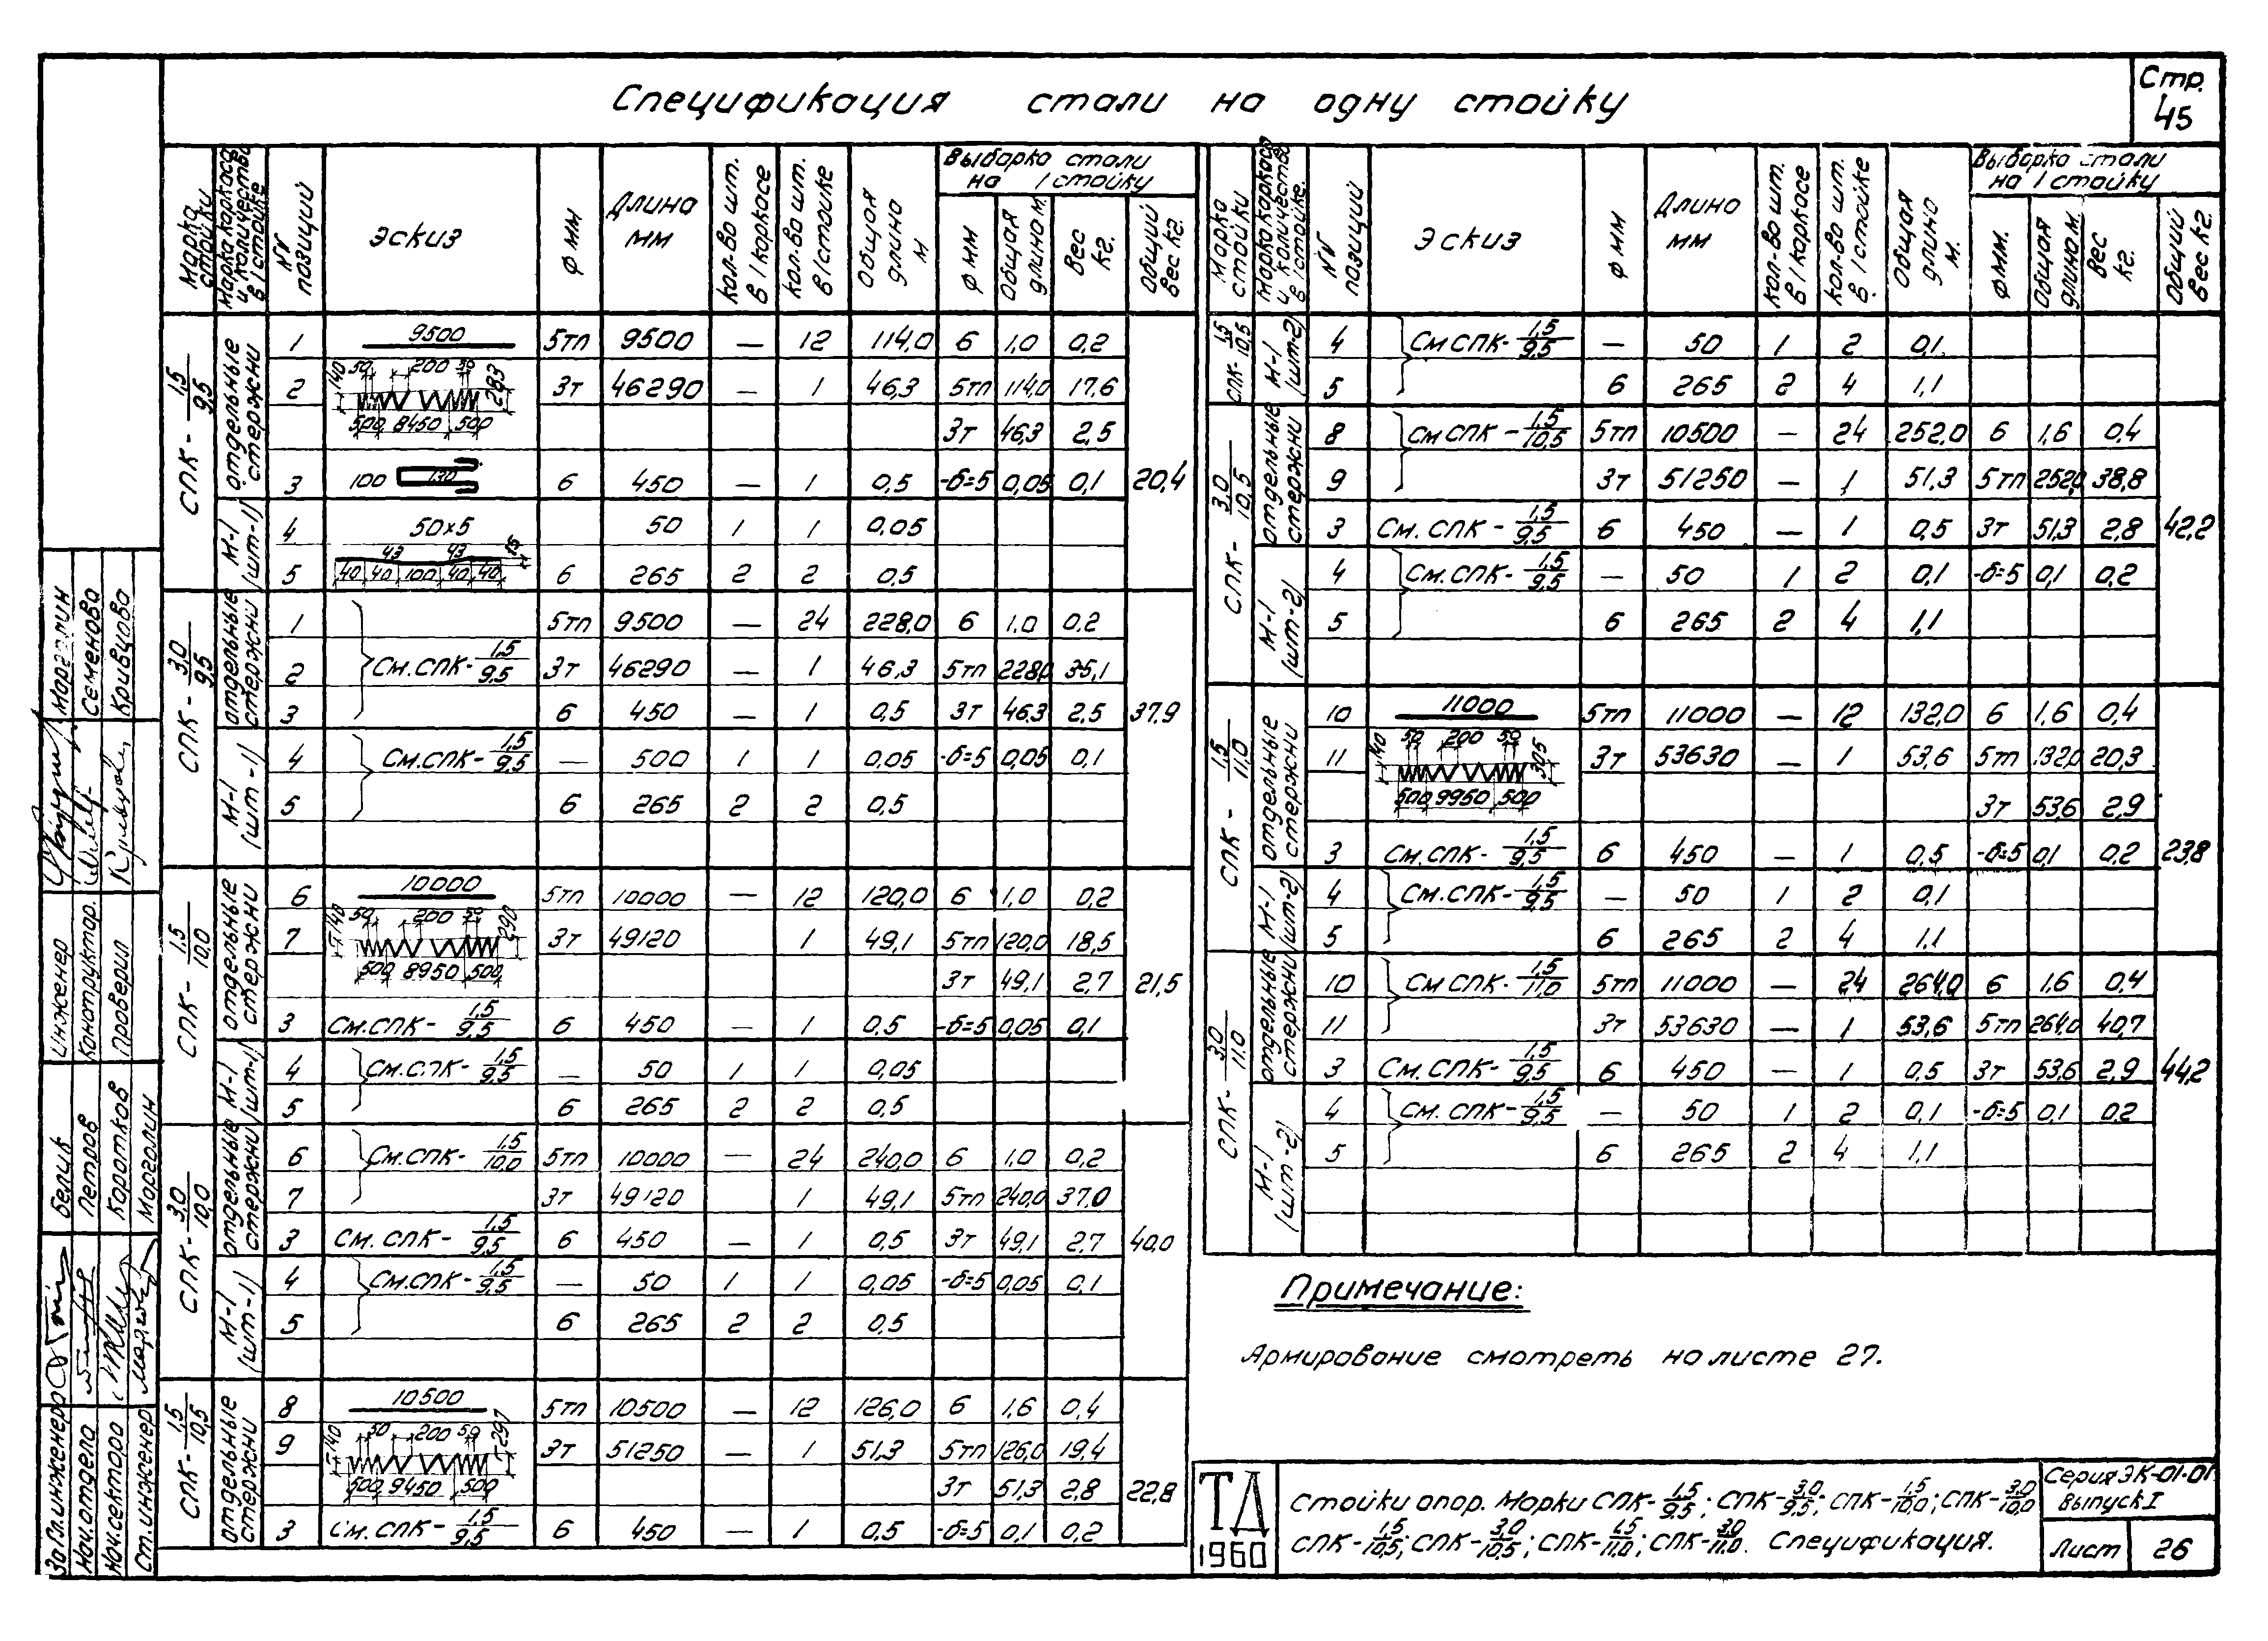 Спецификация стали на одну стойку
Стр. 45
Марка стойки | Марка каркаса и количество в 1 стойке | №№ позиций | Эскиз | ф мм | Длина мм | Кол-во шт. в 1 каркасе | Кол-во шт. в 1 стойке | Общая длина м | Выборка стали на 1 стойку
ф мм | Общая длина м. | Вес кг. | Общий вес кг.
СПК-1,5/9,5 | отдельные стержни | 1 | 9500 | 5тп | 9500 | — | 12 | 114,0 | 6 | 1,0 | 0,2
2 | 140 50 200 50 283 | 3т | 46290 | — | 1 | 46,3 | 5тп | 114,0 | 17,6
500 8450 500 | 3т | 46,3 | 2,5
3 | 100 130 | 6 | 450 | — | 1 | 0,5 | -б=5 | 0,05 | 0,1 | 20,4
М-1 (шт-1) | 4 | 50х5 | 50 | 1 | 1 | 0,05
43 43 15
5 | 40 40 100 40 40 | 6 | 265 | 2 | 2 | 0,5
СПК-3,0/9,5 | отдельные стержни | 1 | 5тп | 9500 | — | 24 | 228,0 | 6 | 1,0 | 0,2
2 | См. СПК-1,5/9,5 | 3т | 46290 | — | 1 | 46,3 | 5тп | 228,0 | 35,1
3 | 6 | 450 | — | 1 | 0,5 | 3т | 46,3 | 2,5 | 37,9
М-1 (шт-1) | 4 | См. СПК-1,5/9,5 | — | 500 | 1 | 1 | 0,05 | -б=5 | 0,05 | 0,1
5 | 6 | 265 | 2 | 2 | 0,5
СПК-1,5/10,0 | отдельные стержни | 6 | 10000 | 5тп | 10000 | — | 12 | 120,0 | 6 | 1,0 | 0,2
7 | 140 50 200 50 290 | 3т | 49120 | 1 | 49,1 | 5тп | 120,0 | 18,5
500 8950 500 | 3т | 49,1 | 2,7 | 21,5
3 | См. СПК-1,5/9,5 | 6 | 450 | — | 1 | 0,5 | -б=5 | 0,05 | 0,1
М-1 (шт-1) | 4 | См. СПК-1,5/9,5 | — | 50 | 1 | 1 | 0,05
5 | 6 | 265 | 2 | 2 | 0,5
СПК-3,0/10,0 | отдельные стержни | 6 | См. СПК-1,5/10,0 | 5тп | 10000 | — | 24 | 240,0 | 6 | 1,0 | 0,2
7 | 3т | 49120 | 1 | 49,1 | 5тп | 240,0 | 37,0
3 | См. СПК-1,5/9,5 | 6 | 450 | — | 1 | 0,5 | 3т | 49,1 | 2,7 | 40,0
М-1 (шт-1) | 4 | См. СПК-1,5/9,5 | — | 50 | 1 | 1 | 0,05 | -б=5 | 0,05 | 0,1
5 | 6 | 265 | 2 | 2 | 0,5
СПК-1,5/10,5 | отдельные стержни | 8 | 10500 | 5тп | 10500 | — | 12 | 126,0 | 6 | 1,6 | 0,4
9 | 140 50 200 50 297 | 3т | 51250 | — | 1 | 51,3 | 5тп | 126,0 | 19,4
500 9450 500 | 3т | 51,3 | 2,8 | 22,8
3 | См. СПК-1,5/9,5 | 6 | 450 | — | 1 | 0,5 | -б=5 | 0,1 | 0,2
Марка стойки | Марка каркаса и количество в 1 стойке. | №№ позиций | Эскиз | ф мм | Длина мм | Кол-во шт. в 1 каркасе | Кол-во шт. в 1 стойке | Общая длина м. | Выборка стали на 1 стойку
ф мм. | Общая длина м. | Вес кг. | Общий вес кг.
СПК-1,5/10,5 | М-1 (шт-2) | 4 | См СПК-1,5/9,5 | — | 50 | 1 | 2 | 0,1
5 | 6 | 265 | 2 | 4 | 1,1
СПК-3,0/10,5 | отдельные стержни | 8 | См СПК-1,5/10,5 | 5тп | 10500 | — | 24 | 252,0 | 6 | 1,6 | 0,4
9 | 3т | 51250 | — | 1 | 51,3 | 5тп | 252,0 | 38,8
3 | См. СПК-1,5/9,5 | 6 | 450 | — | 1 | 0,5 | 3т | 51,3 | 2,8 | 42,2
М-1 (шт-2) | 4 | См. СПК-1,5/9,5 | — | 50 | 1 | 2 | 0,1 | -б=5 | 0,1 | 0,2
5 | 6 | 265 | 2 | 4 | 1,1
СПК-1,5/11,0 | отдельные стержни | 10 | 11000 | 5тп | 11000 | — | 12 | 132,0 | 6 | 1,6 | 0,4
11 | 140 50 200 50 305 | 3т | 53630 | — | 1 | 53,6 | 5тп | 132,0 | 20,3
500 9950 500 | 3т | 53,6 | 2,9
3 | См. СПК-1,5/9,5 | 6 | 450 | — | 1 | 0,5 | -б=5 | 0,1 | 0,2 | 23,8
М-1 (шт-2) | 4 | См. СПК-1,5/9,5 | — | 50 | 1 | 2 | 0,1
5 | 6 | 265 | 2 | 4 | 1,1
СПК-3,0/11,0 | отдельные стержни | 10 | См СПК-1,5/11,0 | 5тп | 11000 | — | 24 | 264,0 | 6 | 1,6 | 0,4
11 | 3т | 53630 | — | 1 | 53,6 | 5тп | 264,0 | 40,7
3 | См. СПК-1,5/9,5 | 6 | 450 | — | 1 | 0,5 | 3т | 53,6 | 2,9 | 44,2
М-1 (шт-2) | 4 | См. СПК-1,5/9,5 | — | 50 | 1 | 2 | 0,1 | -б=5 | 0,1 | 0,2
5 | 6 | 265 | 2 | 4 | 1,1
Примечание:
Армирование смотреть на листе 27.
ТД
1960
Стойки опор. Марки СПК-1,5/9,5; СПК-3,0/9,5; СПК-1,5/10,0; СПК-3,0/10,0
СПК-1,5/10,5; СПК-3,0/10,5; СПК-1,5/11,0; СПК-3,0/11,0. Спецификация.
Серия ЭК-01-01
Выпуск I
Лист 26
Инженер Марголин
Конструктор. Семенова
Проверил Кривцова
За Гл. инженера Белик
Нач. отдела Петров
Нач. сектора Коротков
Ст. инженер Марголин